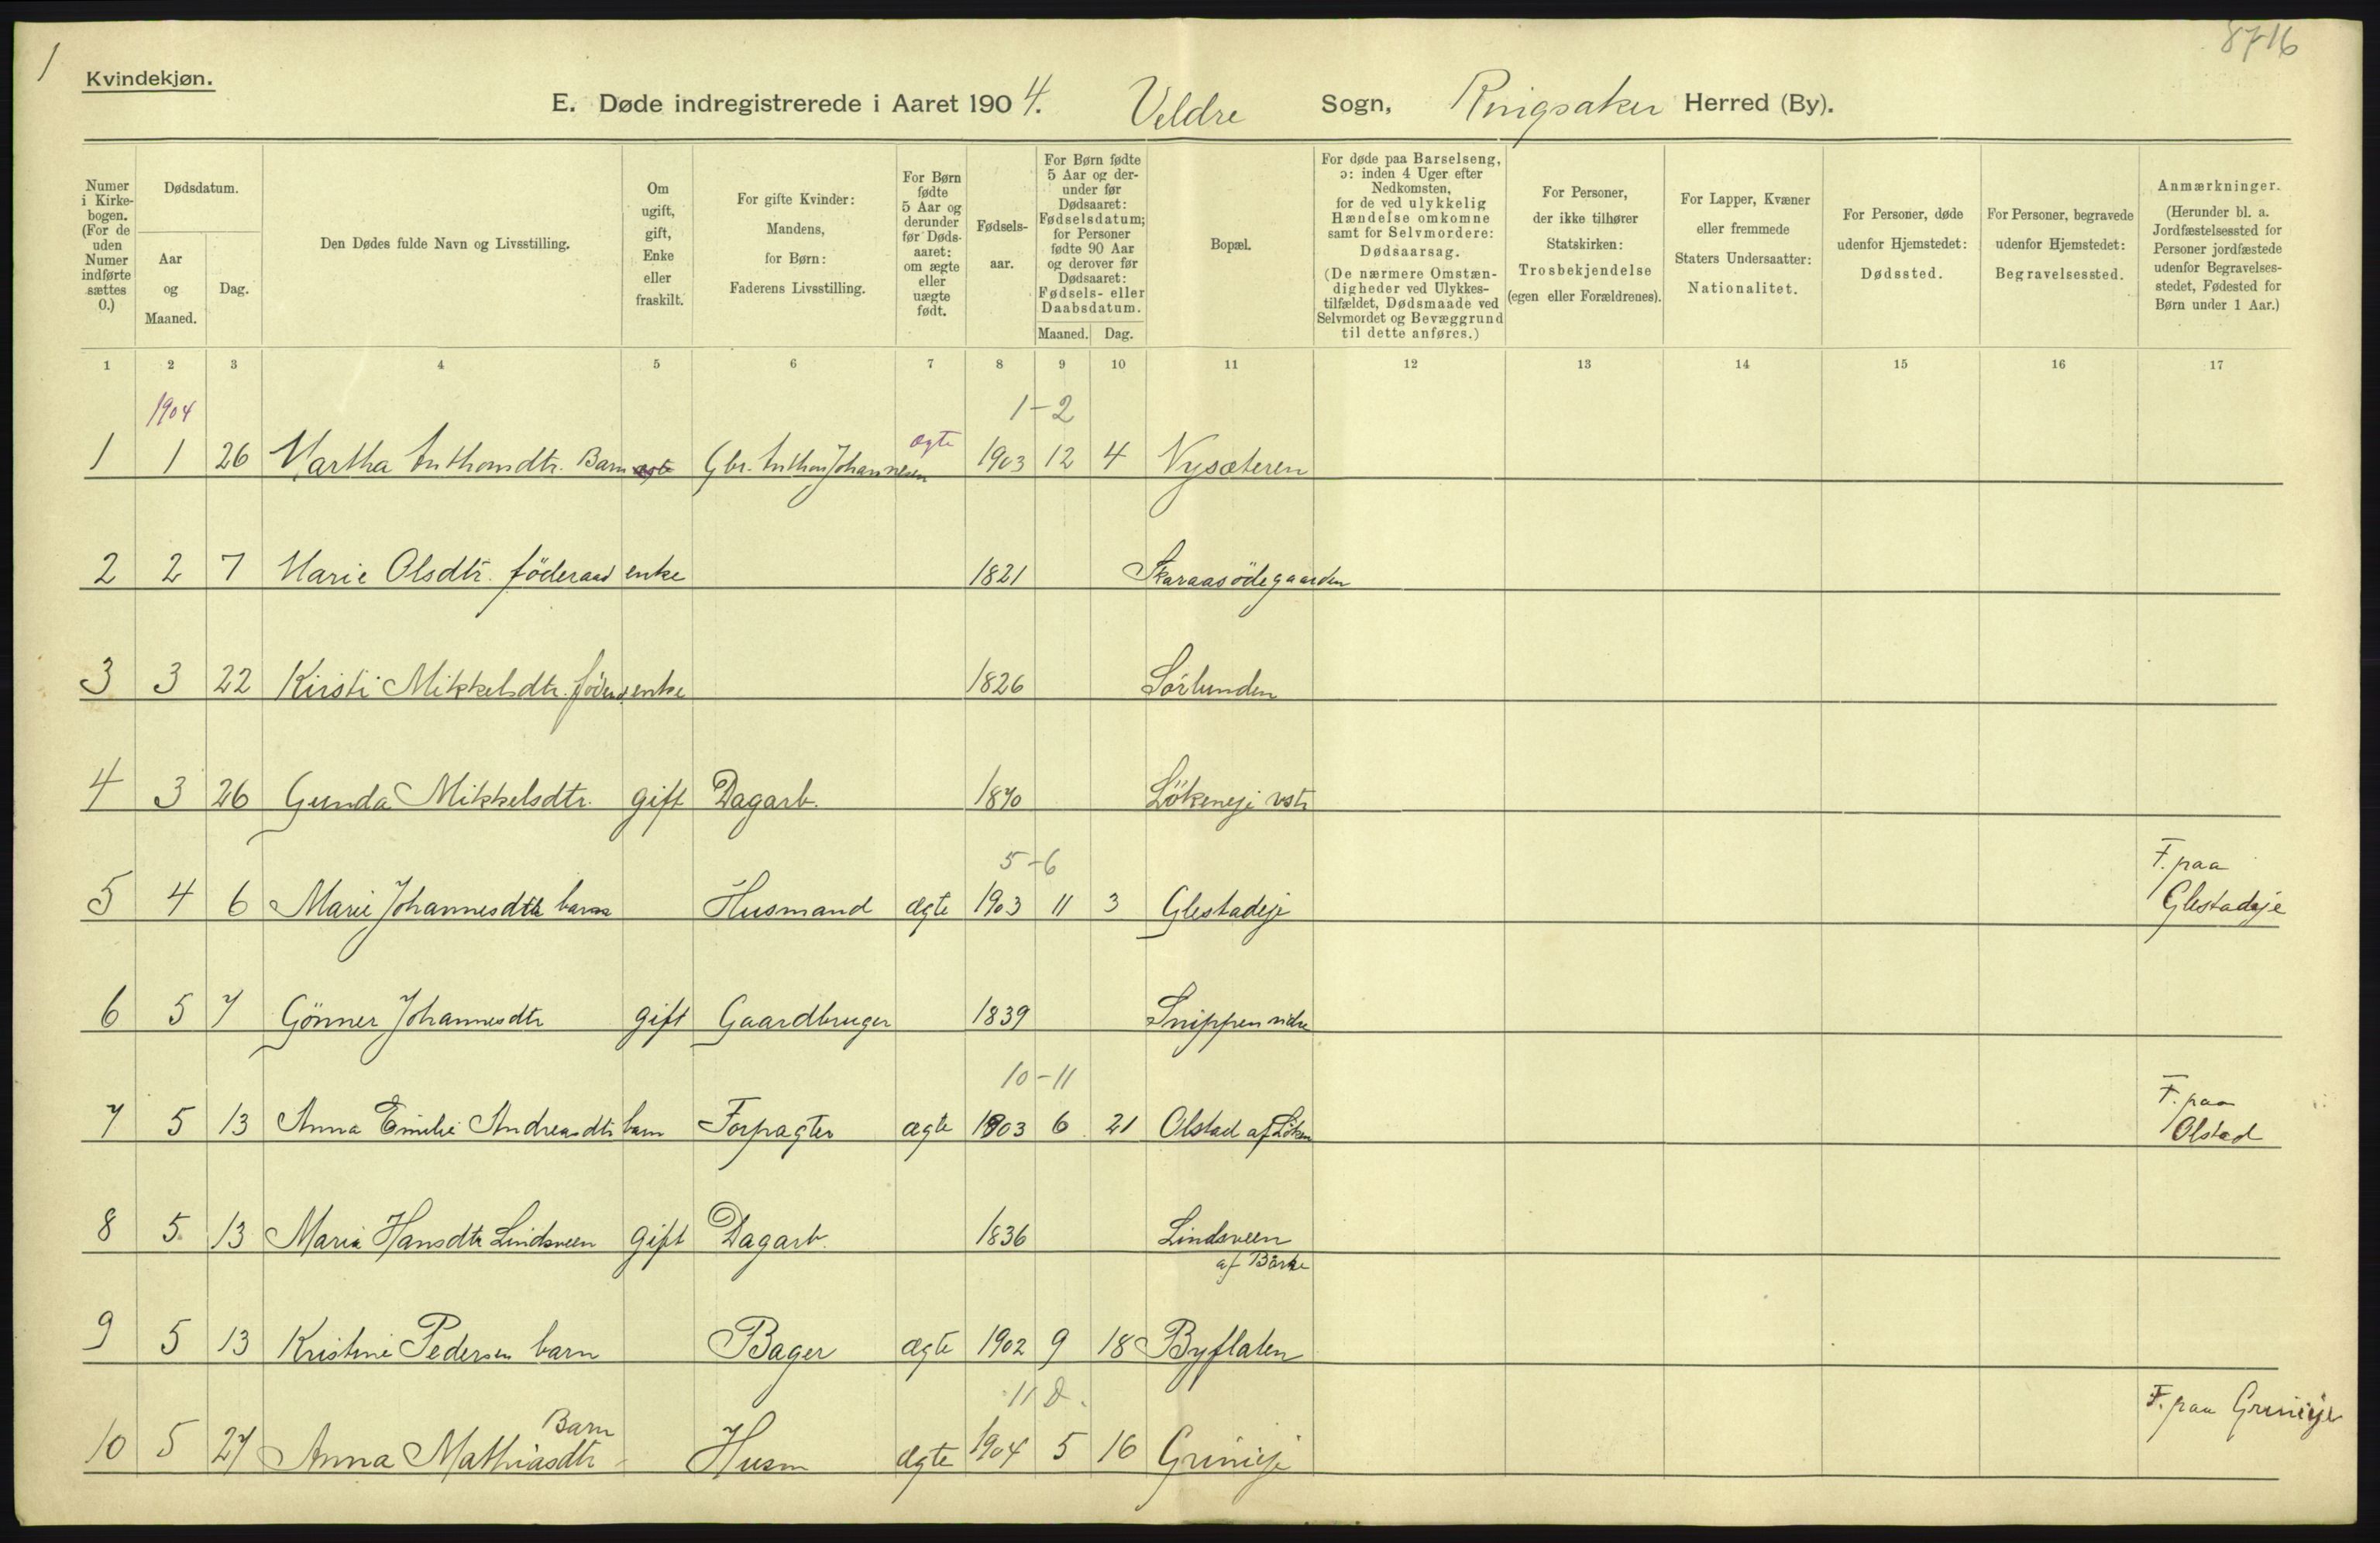 1
8716
Kvindekjøn.
E. Døde indregistrerede i Aaret 1904. Veldre Sogn, Ringsaker Herred (By).
Numer i Kirke-bogen. (For de uden Numer indførte sættes 0.)
Dødsdatum.
Aar og Maaned.
Dag.
Den Dødes fulde Navn og Livsstilling.
Om ugift, gift, Enke eller fraskilt.
For gifte Kvinder: Mandens, for Børn: Faderens Livsstilling.
For Børn fødte 5 Aar og derunder før Døds-aaret: om ægte eller uægte født.
Fødsels-aar.
For Børn fødte 5 Aar og der-under før Dødsaaret: Fødselsdatum; for Personer fødte 90 Aar og derover før Dødsaaret: Fødsels- eller Daabsdatum.
Maaned. Dag.
Bopæl.
For døde paa Barselseng, ɔ: inden 4 Uger efter Nedkomsten, for de ved ulykkelig Hændelse omkomne samt for Selvmordere: Dødsaarsag. (De nærmere Omstæn-digheder ved Ulykkes-tilfældet, Dødsmaade ved Selvmordet og Bevæggrund til dette anføres.)
For Personer, der ikke tilhører Statskirken: Trosbekjendelse (egen eller Forældrenes).
For Lapper, Kvæner eller fremmede Staters Undersaatter: Nationalitet.
For Personer, døde udenfor Hjemstedet: Dødssted.
For Personer, begravede udenfor Hjemstedet: Begravelsessted.
Anmærkninger. (Herunder bl. a. Jordfæstelsessted for Personer jordfæstede udenfor Begravelses-stedet, Fødested for Børn under 1 Aar.)
1 2 3 4 5 6 7 8 9 10 11 12 13 14 15 16 17
1904 1-2
1 1 26 Martha Anthonsdtr. Barn Gbr. Anthon Johannesen ægte 1903 12 4 Nysæteren
2 2 7 Marie Olsdtr. föderaad enke 1821 Skaraasödegaarden
3 3 22 Kirsti Mikkelsdtr. föderd enke 1826 Sörlunden
4 3 26 Gunda Mikkelsdtr. gift Dagarb. 1870 Lökeneje vstr
5-6 F. paa
5 4 6 Marie Johannesdtr barn Husmand ægte 1903 11 3 Glestadeje Glestadeje
6 5 7 Gönner Johannesdtr gift Gaardbruger 1839 Snippen
10-11 F. paa
7 5 13 Anna Emilie Andreasdtr barn Forpagter ægte 1903 6 21 Olstad af Löken Olstad
8 5 13 Maria Hansdtr Lindsveen gift Dagarb. 1836 Lindsveen
af Börke
9 5 13 Kristine Pedersen barn Bager ægte 1902 9 18 Byflaten
Barn 11 D. F. paa Grinieje
10 5 27 Anna Mathiasdtr Husm ægte 1904 5 16 Grinieje